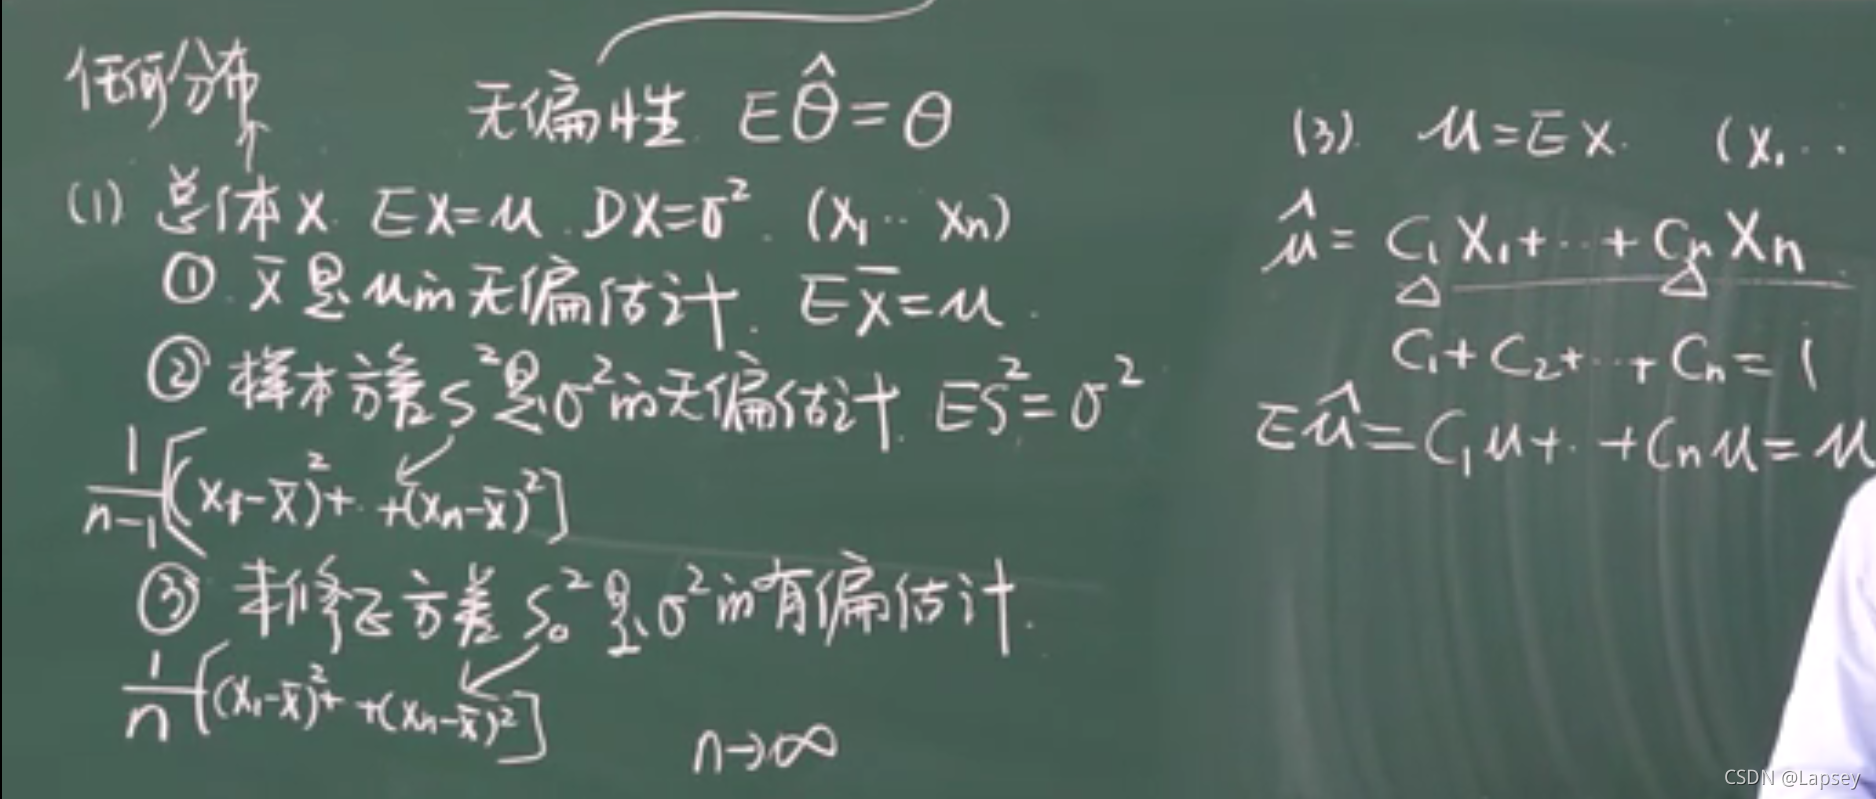 任何分布
无偏性 Eθ̂=θ
(1) 总体X. EX=μ. DX=σ². (X₁ ‥ Xn)
① X̄是μ的无偏估计. EX̄=μ.
② 样本方差S²是σ²的无偏估计. ES²=σ²
1/(n-1)[(X₁-X̄)²+ ‥ +(Xn-X̄)²]
③ 未修正方差S₀²是σ²的有偏估计.
1/n[(X₁-X̄)²+ +(Xn-X̄)²]
n→∞
(3). μ=EX. (X₁ ‥
μ̂=C₁X₁+‥+CnXn
C₁+C₂+‥+Cn=1
Eμ̂=C₁μ+‥+Cnμ=μ
CSDN @Lapsey